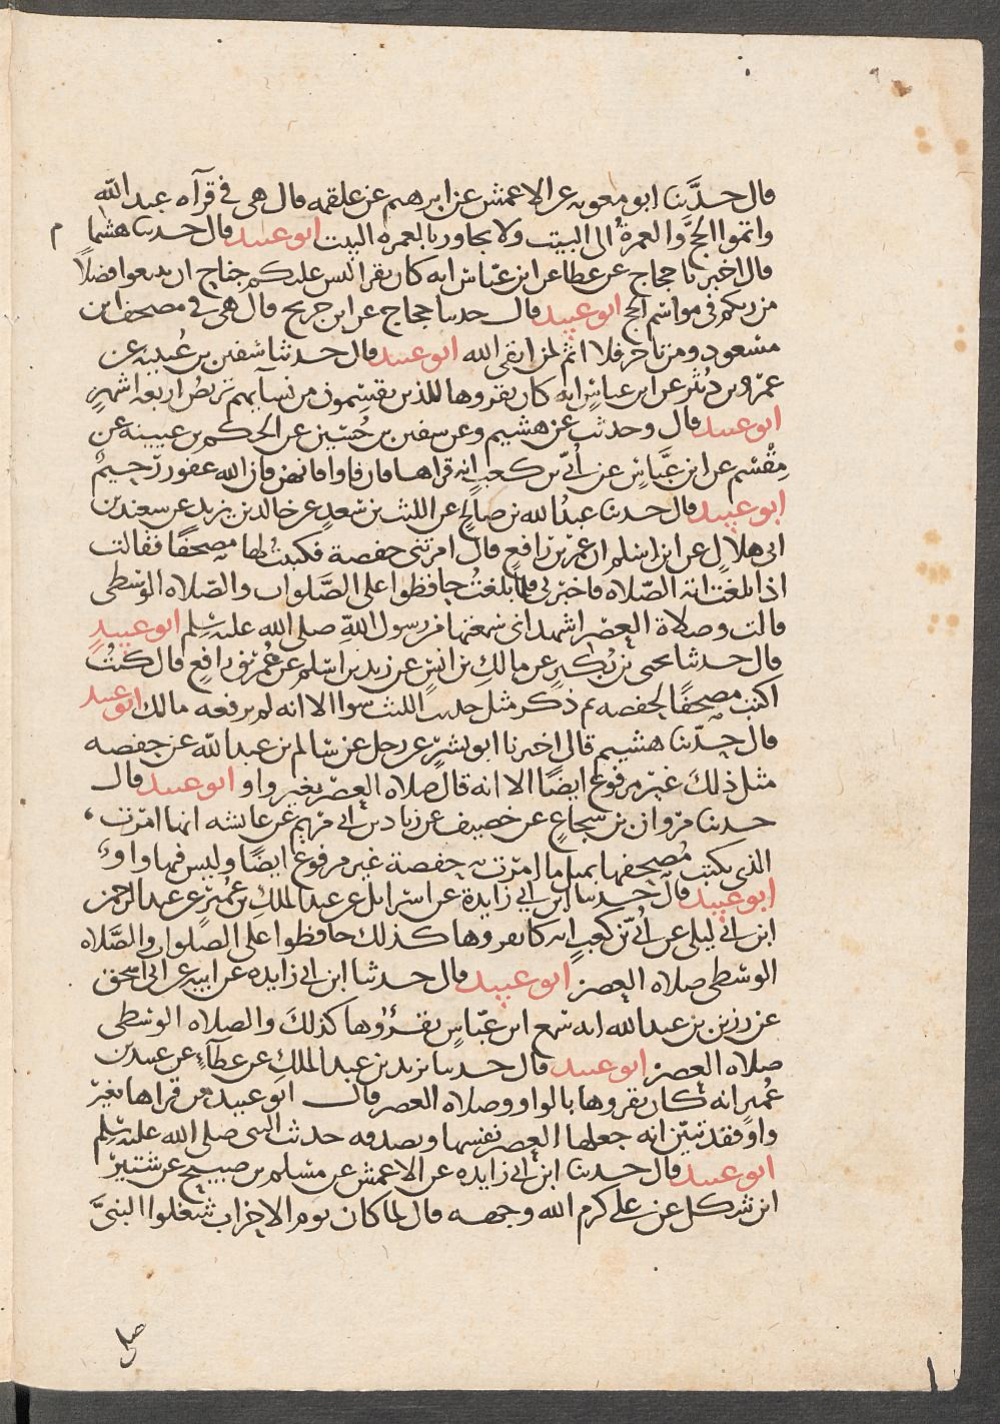 قال حدَّثنا ابو معوىه عن الاعمش عن ابرهىم عن علقمه قال هى فى قرآه عبد الله
واتموا الحجَّ والعمرةُ الى البيت ولا يجاوز بالعمره البيت ابو عبيد قال حدثنا هشيما م
قال اخبرنا حجاج عن عطا عن ابن عبّاس انه كان يقرا ليس عليكم جناح ان تبتغوا فضلاً
من ربكم فى مواسم الحج ابو عبيد قال حدثنا حجاج عن ابن جريج قال هى فى مصحف ابن
مسعود ومن تاخر فلا اثم لمن اتقى الله ابو عبيد قال حدثنا سفين بن عُيينه عن
عمرو بن دينر عن ابن عباسٍ انه كان يقروها للذين يقسمون من نسآيهم تربص اربعه اشهرٍ
ابو عبيد قال وحدثت عن هشيم وعن سفين بن حُسين عن الحكم بن عيينه عن
مِقْسم عن ابن عبَّاسٍ عن أُبىّ بن كعبٍ انه قراها فان فاوا فانهن فان الله غفور رّحيمٌ
ابو عبيد قال حدثنا عبدُ الله بن صالحٍ عن الليث بن سَعدٍ عن خالد بن يزيد عن سعيد بن
ابى هلالٍ عن ابن اسلم ان عمر بن رافعٍ قال امرتنى حفصة فكتبتُ لها مصحفًا فقالت
اذا بلغت اىة الصّلاه فاخبرنى فلما بلغتُ حافظوا على الصَّلوات والصّلاه الوسْطى
قالت وصلاة العصر اشهد انى سمعتها من رسول اللهِ صلى الله عليه وسلم ابو عبيدٍ
قال حدثنا يحيى بن بُكيرٍ عن مالكِ بن انسٍ عن زيد بن اسلم عن عُمر بن رافعٍ قال كنتُ
اكتب مصحفًا لحفصه ثم ذكر مثل حديث الليث سوا الا انه لم يرفعه مالك ابو عبيد
قال حدّثنا هشيم قال اخبرنا ابو بشرٍ عن رجل عن سَالم بن عبد الله عن حفصه
مثل ذلكَ غير مرفوعٍ ايضًا الا انه قال صلاه العصر بغير واو ابو عبيد قال
حدثنا مروان بن شجاعٍ عن خصيف عن زياد بن ابى مريم عن عايشه انها امرت،
الذى يكتب مُصحفها بمثل ما امرت به حفصة غير مرفوع ايضًا وليس فيها واوٌ
ابو عبيد قال حدثنا ابن ابى زايدة عن اسرائيل عن عبد الملكِ بن عُميرٍ عن عبد الرحمن
ابن ابى ليلى عن اُبىّ بن كعبٍ انه كان يقروها كذلك حافظوا على الصلوات والصَّلاه
الوسْطى صلاه العصر ابو عبيد قال حدثنا ابن ابى زايده عن ابيه عن ابى اسحق
عن رزين بن عبد الله انه سمع ابن عبّاسٍ يقرؤها كذلكَ والصلاه الوسْطى
صلاه العصر ابو عبيد قال حدثنا يزيد بن عبد الملكِ عن عطآءٍ عن عبيد بن
عُميرٍ انه كان يقروها بالواو وصلاه العصر قال ابو عبيد فمن قراها بغير
واوٍ فقد تبيّن انه جعلها العصر نفسها وىصدقه حديث النبى صلى الله عليه وسلم
ابو عبيد قال حدثنا ابن ابى زايده عن الاعمش عن مسلم بن صبيح عن شتيرٌ
ابن شكل عن على كرم الله وجهه قال لما كان يوم الاحزاب شغلوا النبىَّ
صلى